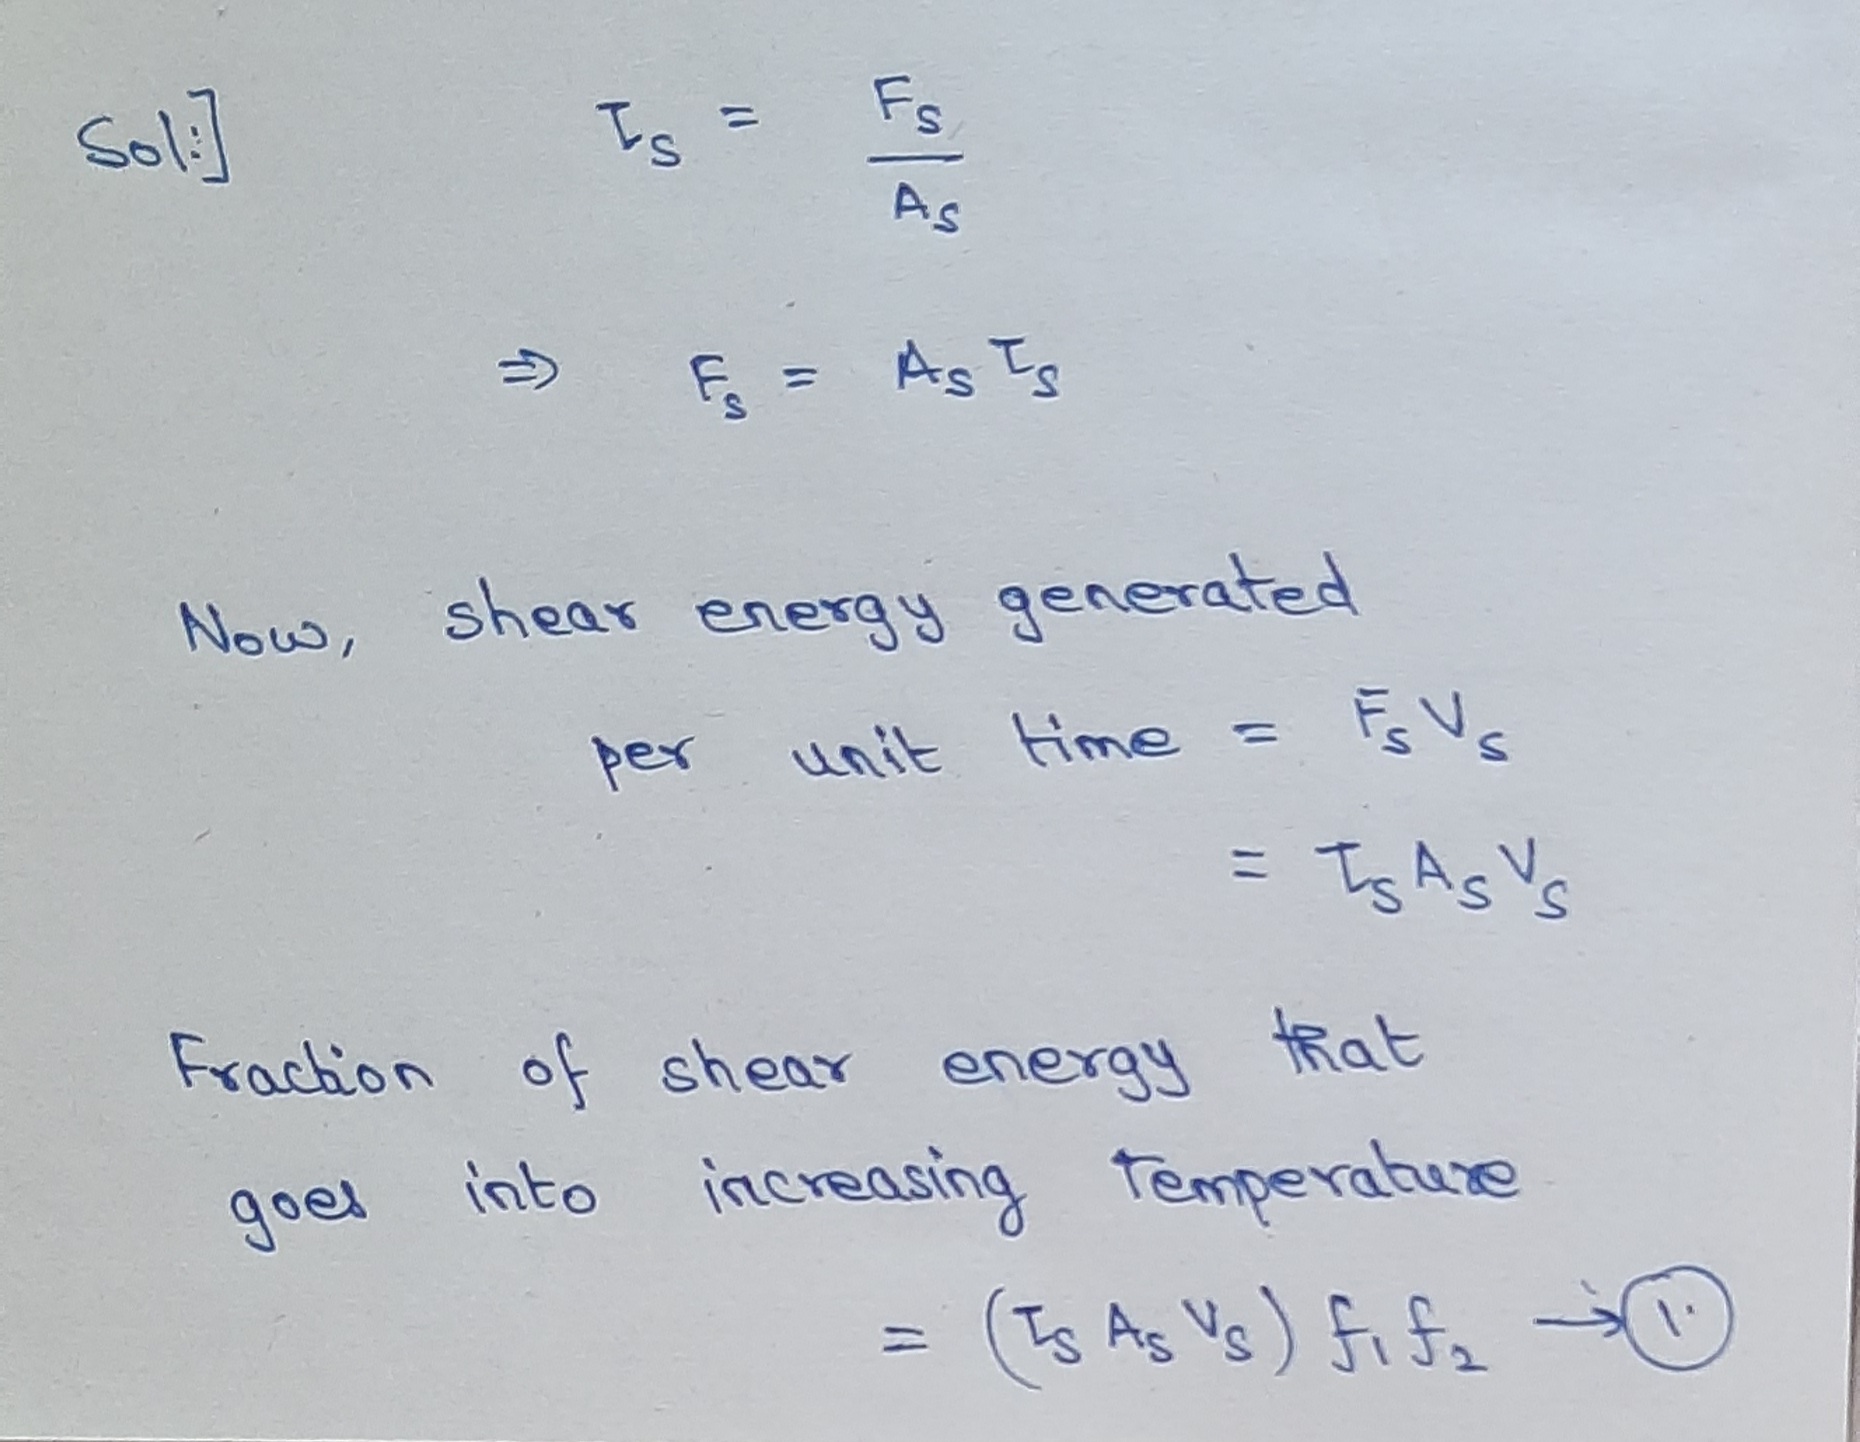 Sol:] τs = Fs / As
⇒ Fs = As τs
Now, shear energy generated
per unit time = Fs Vs
= τs As Vs
Fraction of shear energy that
goes into increasing temperature
= (τs As Vs) f1 f2 → 1.